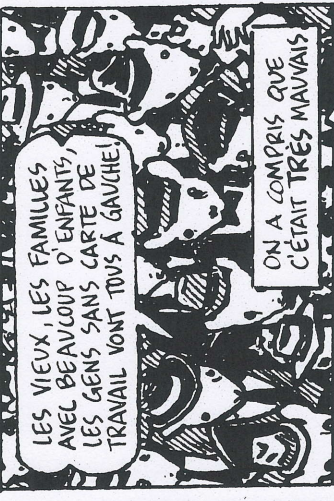 LES VIEUX, LES FAMILLES
AVEC BEAUCOUP D'ENFANTS,
LES GENS SANS CARTE DE
TRAVAIL VONT TOUS À GAUCHE!
ON A COMPRIS QUE
C'ÉTAIT TRÈS MAUVAIS